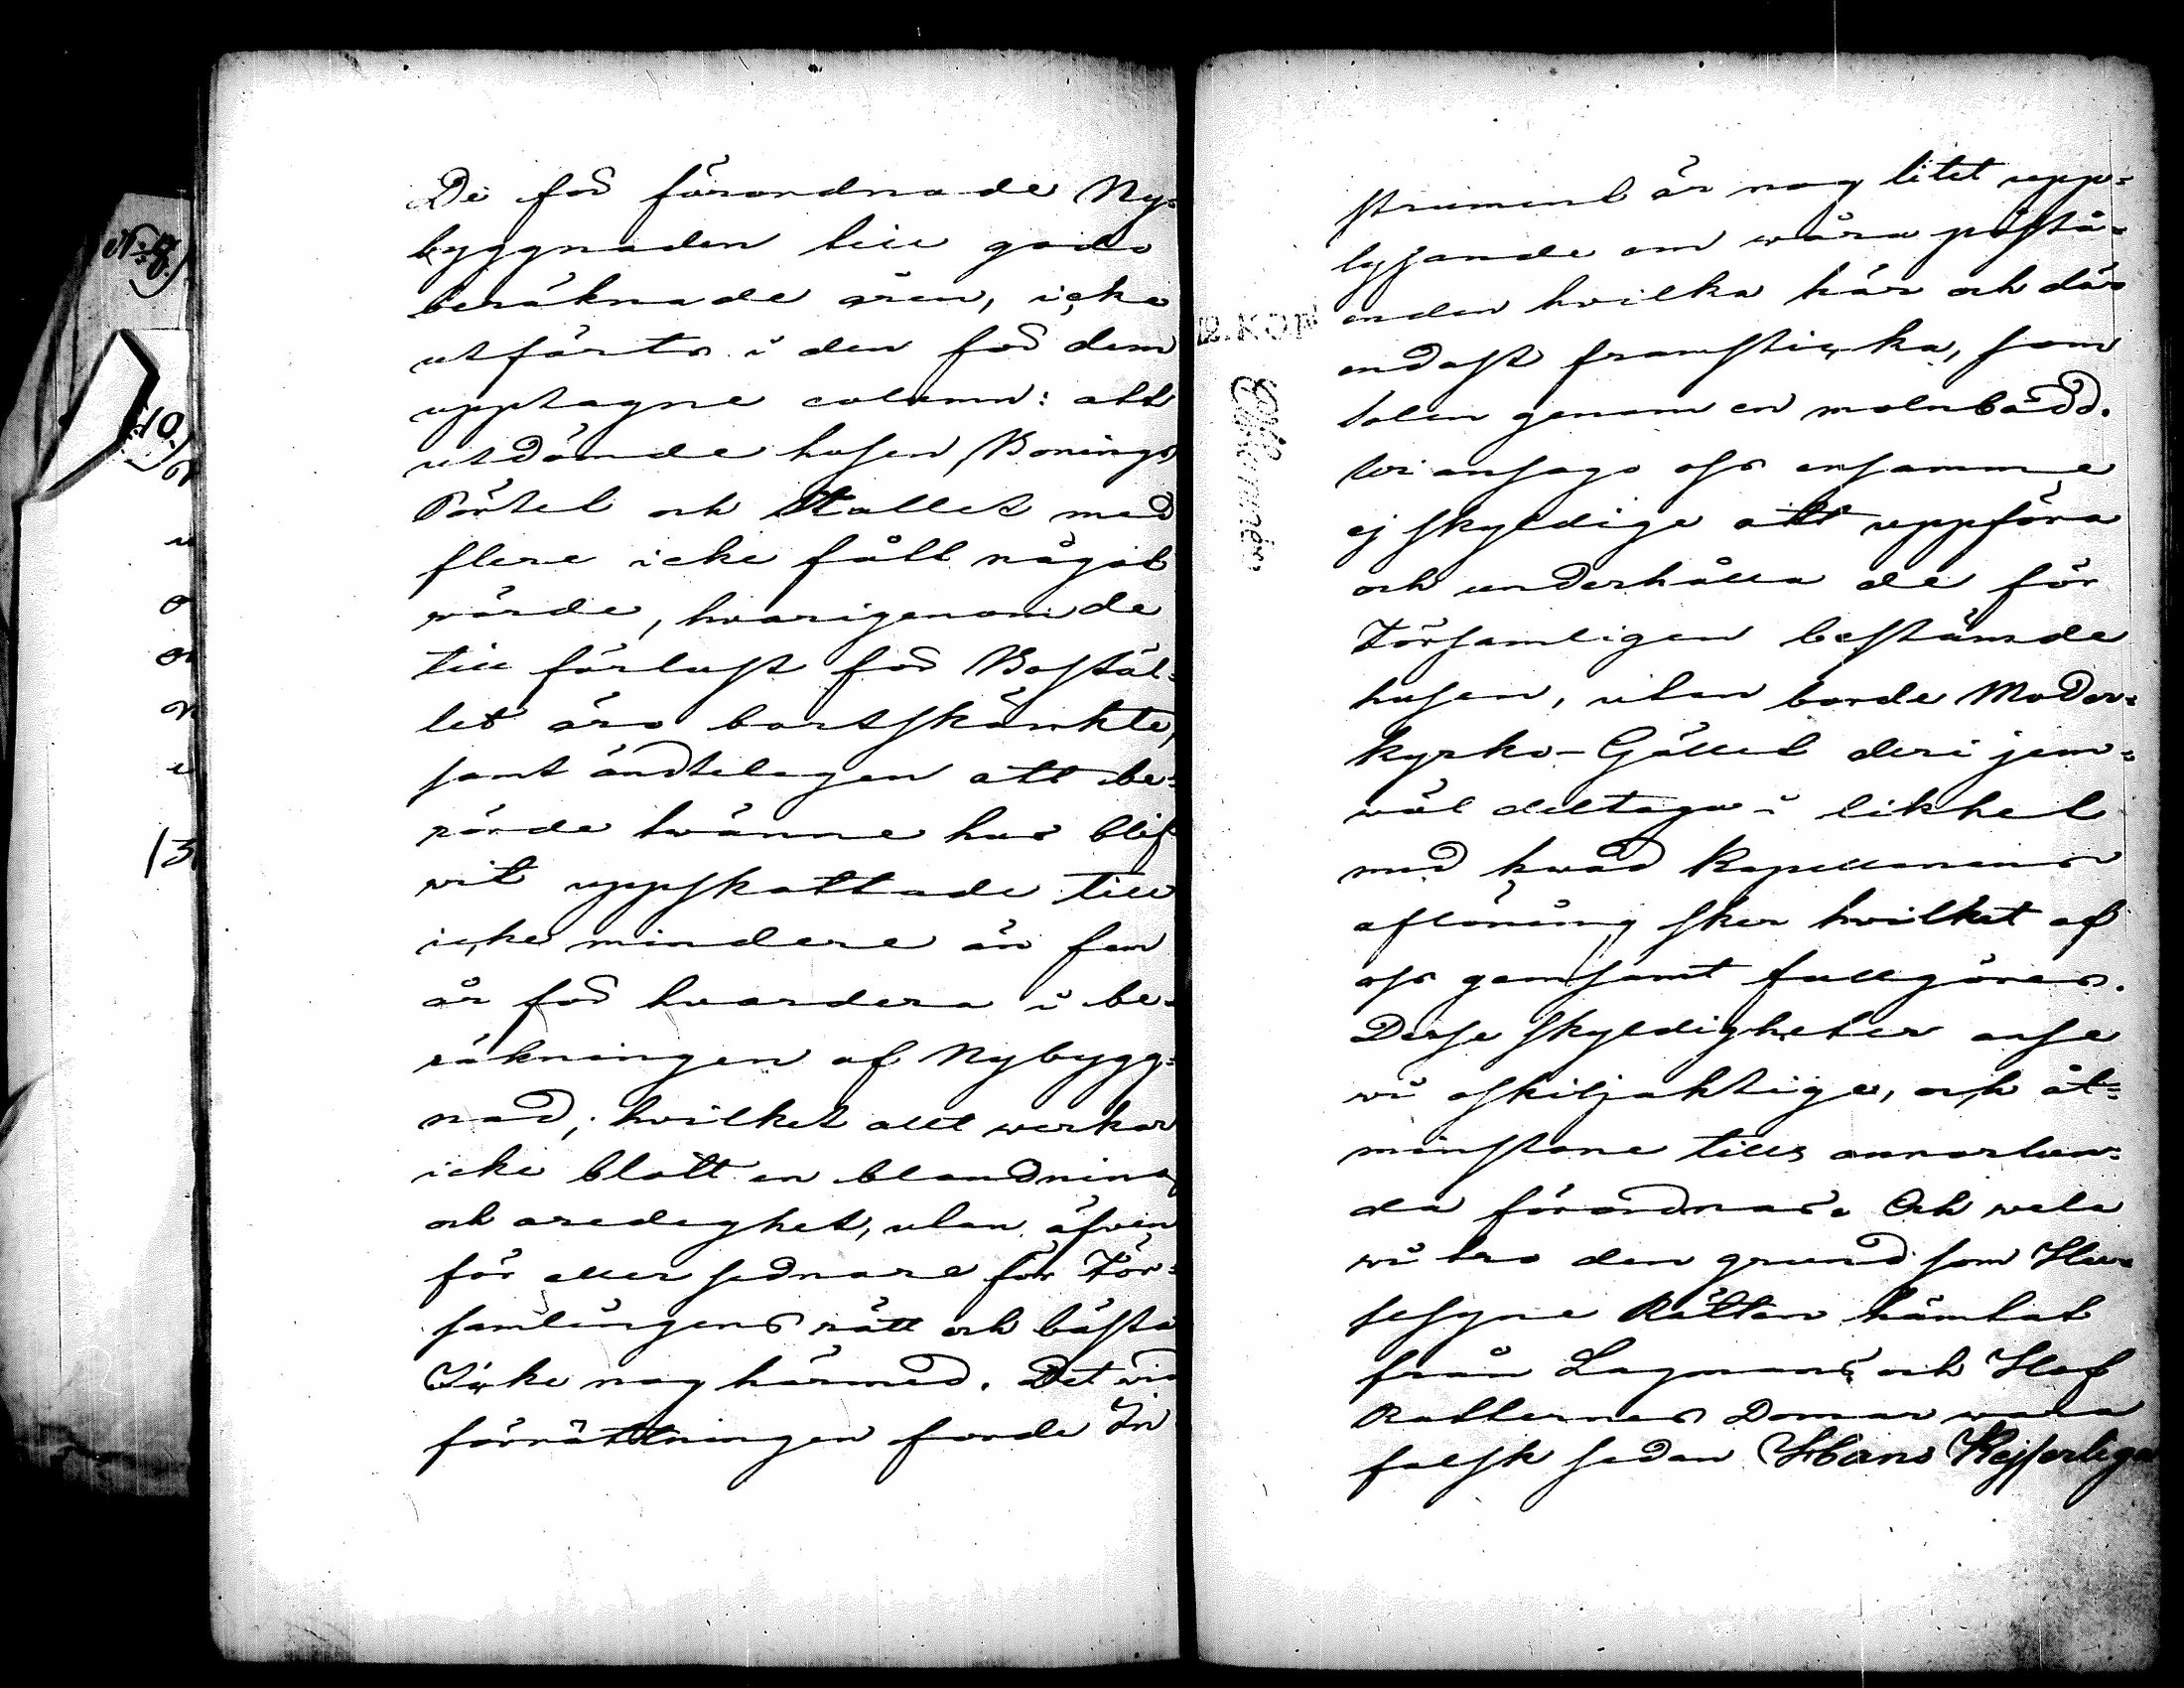 No: 8.)
No: 10.)
De för förordnade Ny=
byggnaden till godo
beräknade åren, icke
utförts i den för dem
upptagne column: att
utdömde husen, Bonings
Pörtet och Stallet med
flere icke fått något
wärde, hvarigenom de
till förlust för Bostäl=
let äro bortskänkte,
samt ändteligen att be=
rörde twänne hus blif
wit uppskattade till
icke mindere än fem
år för hvardera i be=
räkningen af Nybygg=
nad; hvilket allt werkar
icke blott en blandning
och oredighet, utan äfven
för eller sednare för För=
samlingens rätt och bästa
Icke nog härmed. Det vid
förrättningen förde In
strument är nog litet upp=
lysande om wåra påstå=
enden hvilka här och där
endast framsticka, som
solen genom en molnbädd.
Wi ansågo oss ensamme
ej skyldige att uppföra
och underhålla de för
Församligen bestämde
husen, utan borde Moder=
kyrko-Gället deri jem=
wäl deltaga i likhet
med hwad Kapellanens
aflöning sker hvilket af
oss gemsamt fullgöres.
Desse skyldigheter anse
wi oskiljaktige, och åt=
minstone tills annorlun=
da förordnas. Och wela
wi tro den grund som Hu=
sesyne Rätten hämtat
från Lagmans och Hof
Rätternes Domar wara
falsk sedan Hans Kejserliga